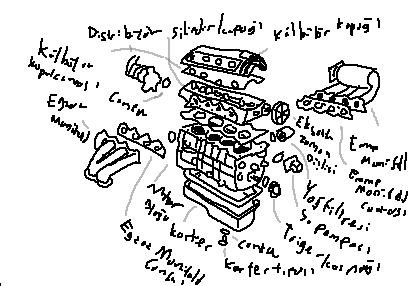 Distribütör
silindir kapağı
Külbütör kapağı
Külbütör
kapak contası
Conta
Egzoz
manifold
Eksantrik
zamanı
Dişlisi
Emme
Manifoldu
Emme
Manifoldu
contası
Yağ filtresi
Su Pompası
Triger kasnağı
Motor
bloğu
karter
Egzoz Manifold
Contası
conta
Karter tıpası